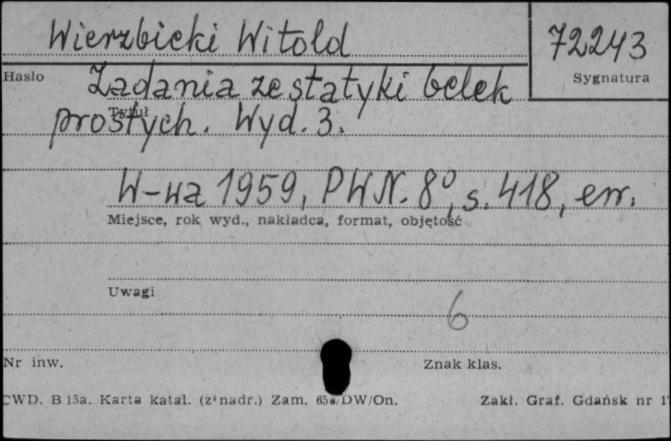 Wierzbicki Witold
72243
Hasło
Sygnatura
Zadania ze statyki belek
Tytuł
prostych. Wyd. 3.
W-wa 1959, PWN. 8°, s. 418, err.
Miejsce, rok wyd., nakładca, format, objętość
Uwagi
6
Nr inw.
Znak klas.
CWD. B 15a. Karta katal. (z nadr.) Zam. 658/DW/On.
Zakł. Graf. Gdańsk nr